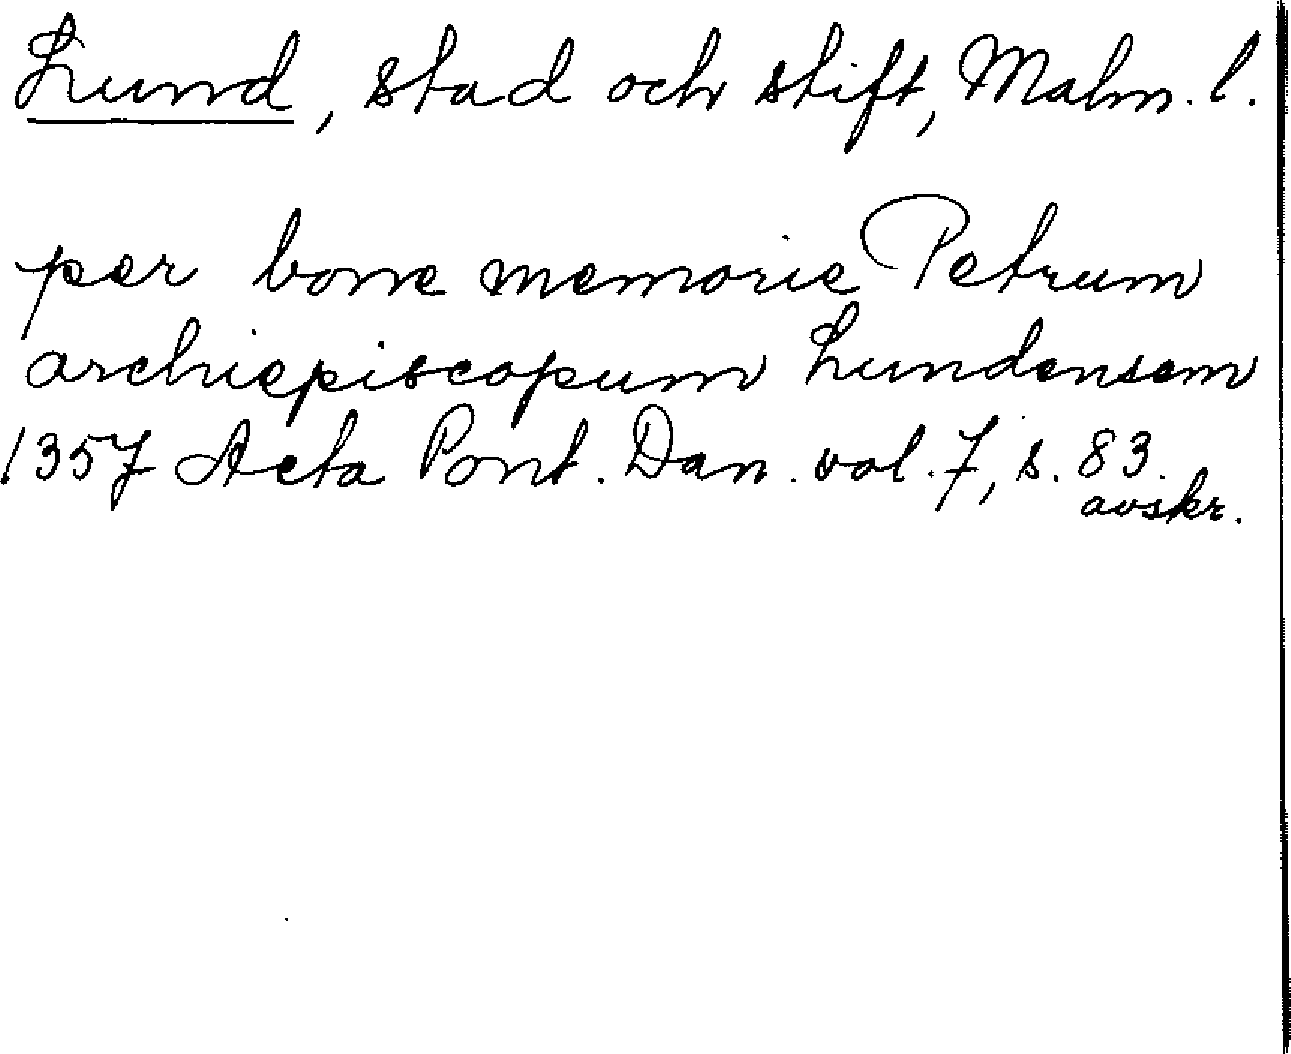 Lund, stad och stift, Malm. l.
per bone memorie Petrum
archiepiscopum Lundensem
1357 Acta Pont. Dan. vol. 7, s. 83.
avskr.